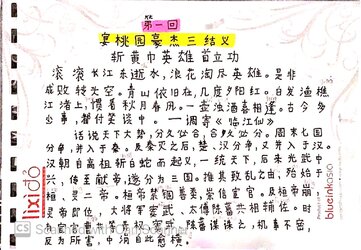 第一回
宴桃园豪杰三结义
斩黄巾英雄首立功
滚滚长江东逝水,浪花淘尽英雄。是非
成败转头空。青山依旧在,几度夕阳红。白发渔樵
江渚上,惯看秋月春风。一壶浊酒喜相逢。古今多
少事,都付笑谈中。——调寄《临江仙》
话说天下大势,分久必合,合久必分。周末七国
分争,并入于秦。及秦灭之后,楚、汉分争,又并入于汉。
汉朝自高祖斩白蛇而起义,一统天下,后来光武中
兴,传至献帝,遂分为三国。推其致乱之由,殆始于
桓、灵二帝。桓帝禁锢善类,崇信宦官。及桓帝崩,
灵帝即位,大将军窦武、太傅陈蕃共相辅佐。时
有宦官曹节等弄权,窦武、陈蕃谋诛之,机事不密,
反为所害,中涓自此愈横。
lixido
blueinkasia
CS